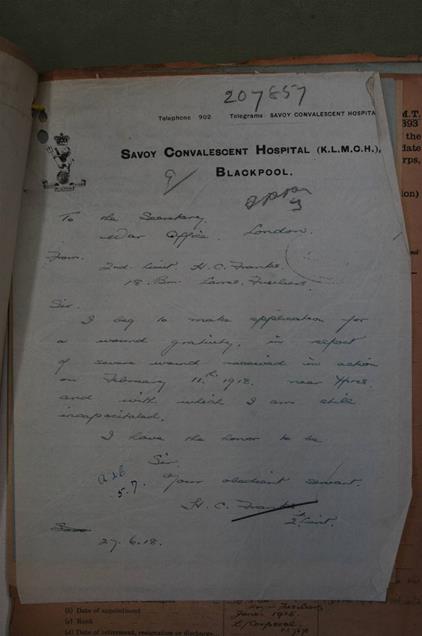 207857
Telephone 902 Telegrams SAVOY CONVALESCENT HOSPITA
SAVOY CONVALESCENT HOSPITAL (K.L.M.C.H.),
BLACKPOOL.
To the Secretary
War Office. London.
From.
2nd. Lieut H. C. Franks.
18. Bn. Lancs. Fusiliers.
Sir.
I beg to make application for
a wound gratuity. in respect
of severe wound received in action
on February 11th 1918. near Ypres
and with which I am still
incapacitated.
I have the honor to be
Sir.
Your obedient servant.
H. C. Franks
2/Lieut.
5.7.
27.6.18.
M.T.
393
the
date
orps,
ion)
(b) Date of appointment
(c) Rank
(d) Date of retirement, resignation or discharge